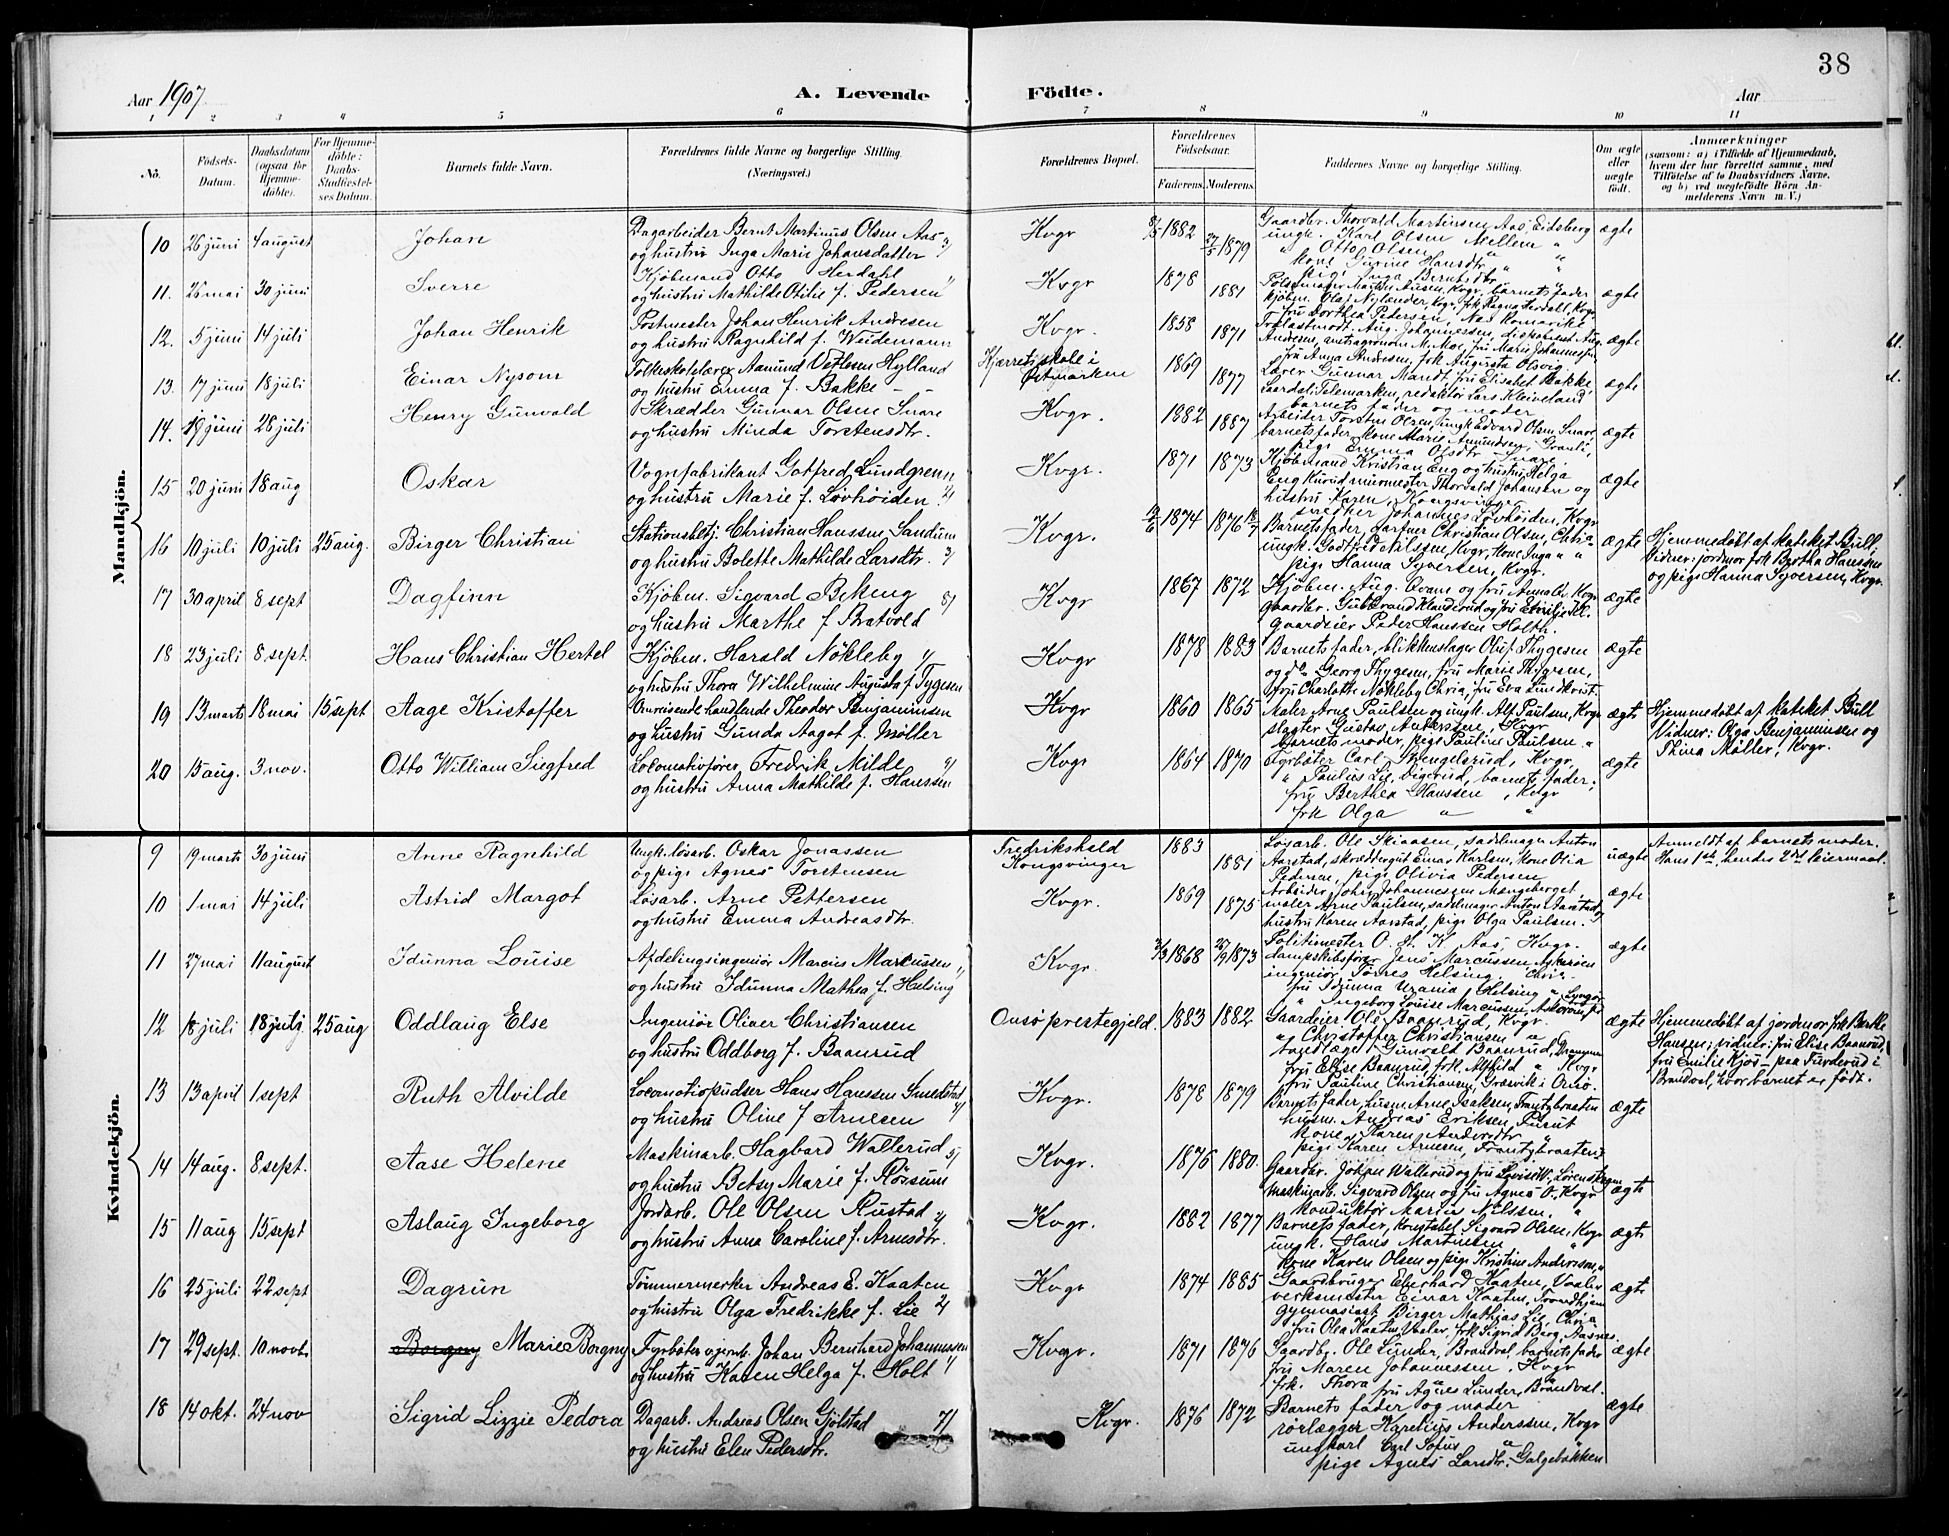 38
Aar 1907
A. Levende
Födte.
Aar
1 2 3 4 5 6 7 8 9 10 11
No.
Födsels-Datum.
Daabsdatum (ogsaa för Hjemmedöbte).
For Hjemmedöbte: Daabs-Stadfæstelses Datum.
Barnets fulde Navn.
Forældrenes fulde Navne og borgerlige Stilling.
(Næringsvei.)
Forældrenes Bopæl.
Forældrenes Födselsaar.
Faderens. Moderens.
Faddernes Navne og borgerlige Stilling.
Om ægte eller uægte födt.
Anmærkninger
(saasom: a) i Tilfælde af Hjemmedaab, hvem der har forrettet samme, med Tilföielse af to Daabsvidners Navne, og b) ved uægtefödte Börn Anmelderens Navn m. V.)
Mandkjön.
10 26 juni 4 august Johan
Dagarbeider Bernt Martinus Olsen Aas
og hustru Inga Marie Johansdatter
Kvgr 1882 1879
Gaardbr. Thorvald Martinsen Aas, Eidsberg
ungk. Karl Olsen Mellem "
" Otto Olsen "
kone Gurine Hansdtr. "
pige Inga Berntsdtr. "
ægte
11. 26 mai 30 juni Sverre
Kjöbmand Otto Herdahl
og hustru Mathilde Otilie f. Pedersen
Kvgr 1878 1881
barnets fader
kjöbm. Olaf Nylander, Kvgr, frk Ragna Herdahl, Kvgr
fru Dorthea Pedersen, Nes Romerike
ægte
12. 5 juni 14 juli Johan Henrik
Postmester Johan Henrik Andresen
og hustru Ragnhild f. Weidemann
Kvgr. 1858 1871
Trælastmodt. Aug. Johannessen,
fru Anna Andresen, frk Augusta
ægte
13. 17 juni 18 juli Einar Nysom
Folkeskolelærer Aamund Hylland
og hustru Emma f. Bakke
Kjærret skole i
Östmarken
1869 1877
Lærer Gunnar Mandt, fru Elisabet Bakke,
Laardal i Telemarken, redaktör Lars Kleiveland,
barnets fader og moder
ægte
14. 19 juni 28 juli Henry Gunvald
Skrædder Gunnar Olsen Snare
og hustru Minda Torstensdtr.
Kvgr. 1882 1887
Arbeider Torsten Olsen, ungk Edvard Olsen Snare,
barnets fader, kone Marie Amundsen, Granli,
pige Emma Olsdtr Snare.
ægte
15 20 juni 18 aug Oskar
Vognfabrikant Gotfred Lundgren
og hustru Marie f. Lövhöiden
Kvgr. 1871 1873
Kjöbmand Kristian Eng og hustru Helga
Eng Kurud murmester Thorvald Johansen og
hustru Karen, Kongsvinger
snedker Johannes Lövhöiden, Kvgr.
ægte
16 10 juli 10 juli 25 aug. Birger Christian
Stationsbetj. Christian Hanssen Sandum
og hustru Bolette Mathilde Larsdtr.
Kvgr. 1874 1876
Barnets fader, gartner Christian Olsen, Chria
ungk. Godtfred Nilssen, Kvgr, kone Inga " "
pige Hanna Syversen, Kvgr.
ægte
Hjemmedöbt af kateket Bull,
Vidner: jordmor frk Bertha Hanssen
og pige Hanna Syversen, Kvgr.
17 30 april 8 sept Dagfinn
Kjöbm. Sigvard Bekeng
og hustru Marthe f. Bratvold
Kvgr 1867 1872
Kjöbm. Aug. Evam og fru Anna Ev. Kvgr
gaardbr. Gulbrand Klanderud og fru Emilie Kl.
gaardeier Peder Hanssen Holth.
ægte
18 23 juli 8 sept. Hans Christian Hertel
Kjöbm. Harald Nökleby
og hustru Thora Wilhelmine Augusta f. Tygesen
Kvgr 1878 1883
Barnets fader, blikkenslager Oluf Thygesen
og do Georg Thygesen, fru Marie Thygesen,
fru Charlotte Nökleby Chria, fru Eva Lundkvist.
ægte
19 13 marts 18 mai 15 sept Aage Kristoffer
Omreisende handlende Theodor Benjaminsen
og hustru Gunda Aagot f. Møller
Kvgr 1860 1865
Maler Arne Paulsen og ungk. Alf Paulsen, Kvgr
slagter Gustav Andersen, Kvgr
barnets moder, pige Pauline Paulsen "
ægte
Hjemmedöbt af kateket Bull
Vidner: Olga Benjaminsen og
Thina Møller, Kvgr.
20 15 aug. 3 nov. Otto William Siegfred
Lokomotivförer Fredrik Milde
og hustru Anna Mathilde f. Hanssen
Kvgr 1864 1870
Fyrböter Carl Stengelsrud, Kvgr,
" Paulus Lie, Digerud, barnets fader,
fru Berthea Hanssen, Kvgr
frk Olga " "
ægte
Kvindekjön.
9 19 marts 30 juni Anne Ragnhild
Ungk. lösarb. Oskar Jonassen
og pige Agnes Torstensen
Fredrikshald
Kongsvinger
1883 1881
Lösarb. Ole Skiaasen, sadelmager Anton
Aarstad, skræddergut Einar Karlsen, kone Olia
Pedersen, pige Olivia Pedersen
uægte
Anmeldt af barnets moder.
Hans 1ste, hendes 2det leiermaal.
10 1 mai 14 juli Astrid Margot
Lösarb. Arne Pettersen
og hustru Emma Andreasdtr.
Kvgr. 1869 1875
Arbeider Johs. Johannessen Mængeberget,
maler Arne Paulsen, sadelmager Anton Aarstad og
hustru Karen Aarstad, pige Olga Paulsen.
ægte
11 27 mai 11 august Idunna Louise
Afdelingsingeniör Marcus Marcussen
og hustru Idunna Mathea f. Helsing
Kvgr. 1868 1873
Politimester O. H. K. Aas, Kvgr.
dampskibsförer Jens Marcussen, Askeröen
ingeniör Tönnes Helsing, Chria.
fru Idunna Urania Helsing " Lyngör
" Ingeborg Louise Marcussen, Askeröen
ægte
12 18 juli 18 juli 25 aug Oddlaug Else
Ingeniör Oliver Christiansen
og hustru Oddborg f. Baanrud
Onsö prestegjeld 1883 1882
Gaardeier Ole Baanrud, Kvgr.
" Christoffer Christiansen "
tandlæge Gunvald Baanrud, Drammen
fru Elise Baanrud, frk. Alfhild " Kvgr
fru Pauline Christiansen, Græsvik i Onsö.
ægte
Hjemmedöbt af jordmor frk Berthe
Hansen; vidner: fru Elise Baanrud,
fru Emilie Kjös – paa Furderud i
Brandval, hvor barnet er födt.
13 13 april 1 sept Ruth Alvilde
Locomotivpudser Hans Hanssen Smedstad
og hustru Oline f. Arnesen
Kvgr. 1878 1879
Barnets fader, husm Arne Isaksen, Frantzbraaten
husm. Andreas Eriksen, Furut
kone Karen Andersdtr "
pige Karen Arnesen, Frantzbraaten
ægte
14 14 aug. 8 sept. Aase Helene
Maskinarb. Hagbard Wallerud
og hustru Betsy Marie f. Rösum
Kvgr. 1876 1880.
Gaardbr. Johan Wallerud og fru Lovise W., Lörenskogen
maskinarb. Sigvard Olsen og fru Agnes O., Kvgr
konduktör Marius Nilssen, "
ægte
15 11 aug 15 sept Aslaug Ingeborg
Jordarb. Ole Olsen Rustad
og hustru Anna Caroline f. Arnesdtr.
Kvgr. 1882 1877
Barnets fader, konstabel Sigvard Olsen, Kvgr
ungk. Hans Martinsen "
kone Karen Olsen og pige Kristine Andersen, "
ægte
16 25 juli 22 sept Dagrun
Tömmermerker Andreas E. Kaaten
og hustru Olga Fredrikke f. Lie
Kvgr 1874 1885
Gaardbruger Eberhard Kaaten, Vaaler
verksmester Einar Kaaten, Trondhjem
gymnasiast Birger Mathias Lie, Chria
fru Olea Kaaten Vaaler, frk Sigrid Berg, Aasnes.
ægte
17 29 sept. 10 novb. Borgny Marie Borgny
Fyrböter v. jernb. Johan Bernhard Johannessen
og hustru Karen Helga f. Holt
Kvgr. 1871 1876
Gaardbr. Ole Lunder, Brandval, barnets fader
fru Maren Johannessen, Kvgr
frk. Thora " fru Agnes Lunder, Brandval.
ægte
18 14 okt. 24 nov Sigrid Lizzie Pedora
Dagarb. Andreas Olsen Gjölstad
og hustru Elen Pedersdtr.
Kvgr. 1876 1872
Barnets fader og moder
rörlægger Karelius Anderssen, Kvgr
ungkarl Carl Sofus " "
pige Agnes Larsdtr. Galgebakken
ægte